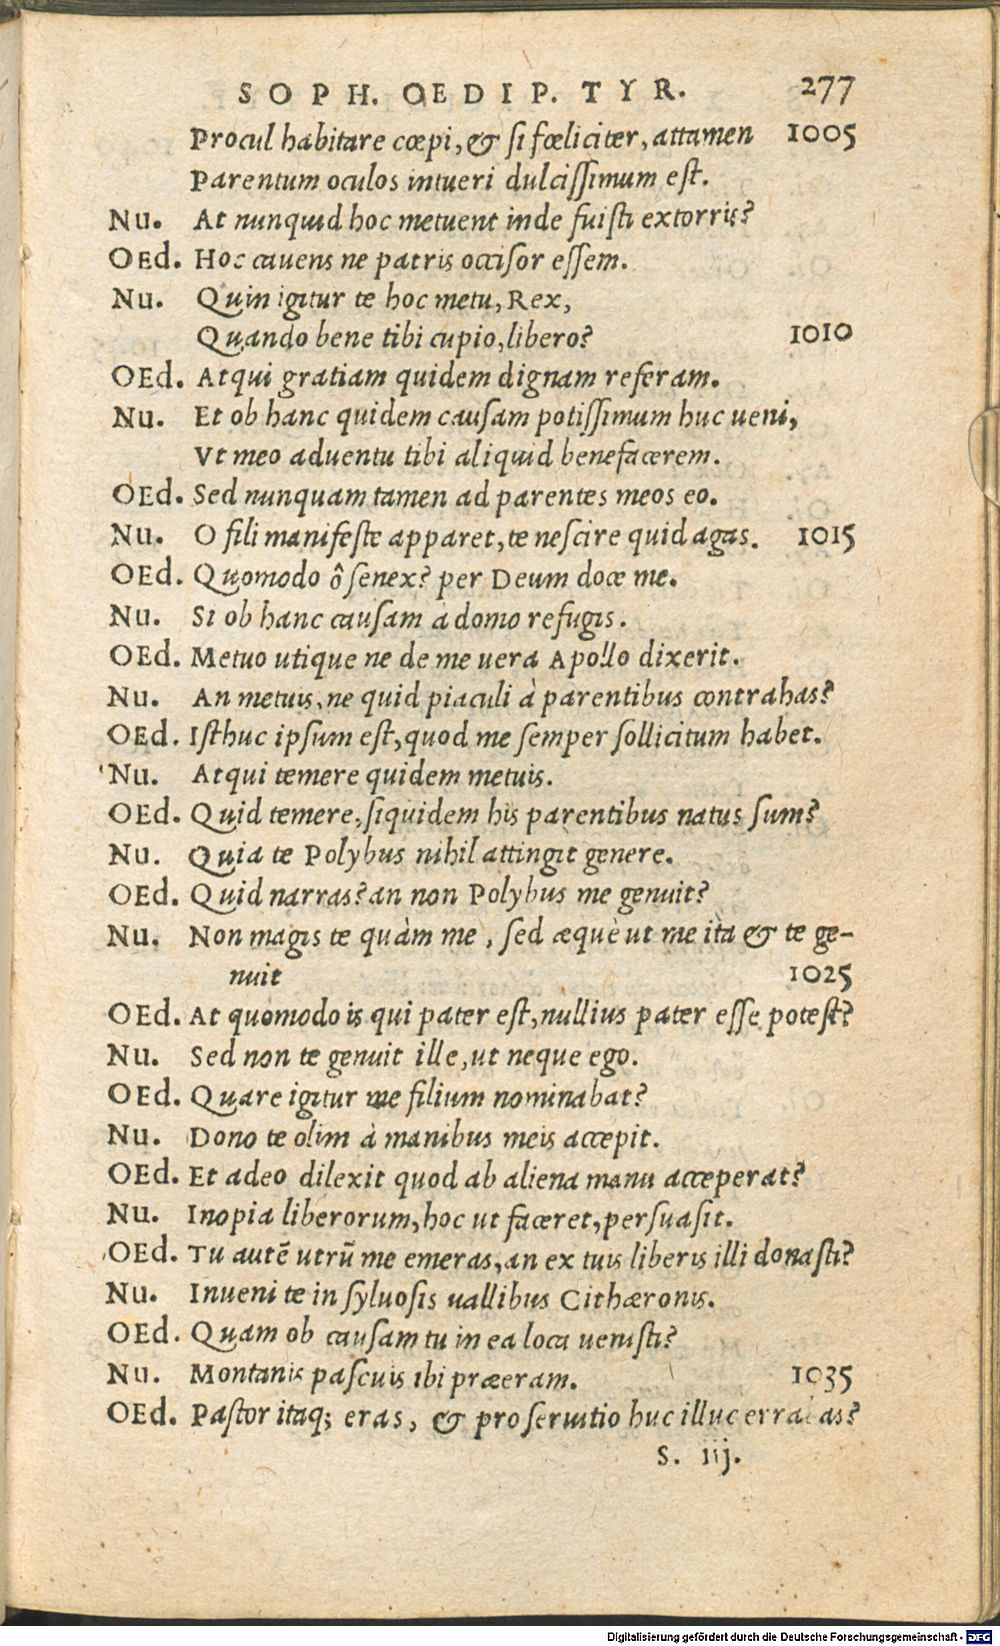 SOPH. OEDIP. TYR. 277
Procul habitare cœpi, & si fœliciter, attamen 1005
Parentum oculos intueri dulcissimum est.
Nu. At nunquid hoc metuens inde fuisti extorris?
OEd. Hoc cauens ne patris occisor essem.
Nu. Quin igitur te hoc metu, Rex,
Quando bene tibi cupio, libero? 1010
OEd. Atqui gratiam quidem dignam referam.
Nu. Et ob hanc quidem causam potissimum huc ueni,
Vt meo aduentu tibi aliquid benefacerem.
OEd. Sed nunquam tamen ad parentes meos eo.
Nu. O fili manifeste apparet, te nescire quid agas. 1015
OEd. Quomodo ô senex? per Deum doce me.
Nu. Si ob hanc causam a domo refugis.
OEd. Metuo utique ne de me uera Apollo dixerit.
Nu. An metuis, ne quid piaculi à parentibus contrahas?
OEd. Isthuc ipsum est, quod me semper sollicitum habet.
Nu. Atqui temere quidem metuis.
OEd. Quid temere, siquidem his parentibus natus sum?
Nu. Quia te Polybus nihil attingit genere.
OEd. Quid narras? an non Polybus me genuit?
Nu. Non magis te quàm me, sed æquè ut me ità & te ge-
nuit 1025
OEd. At quomodo is qui pater est, nullius pater esse potest?
Nu. Sed non te genuit ille, ut neque ego.
OEd. Quare igitur me filium nominabat?
Nu. Dono te olim à manibus meis accepit.
OEd. Et adeo dilexit quod ab aliena manu acceperat?
Nu. Inopia liberorum, hoc ut faceret, persuasit.
OEd. Tu autē utrū me emeras, an ex tuis liberis illi donasti?
Nu. Inueni te in syluosis uallibus Cithæronis.
OEd. Quam ob causam tu in ea loca uenisti?
Nu. Montanis pascuis ibi præeram. 1035
OEd. Pastor itaq; eras, & pro seruitio huc illuc errabas?
S. iij.
Digitalisierung gefördert durch die Deutsche Forschungsgemeinschaft - DFG